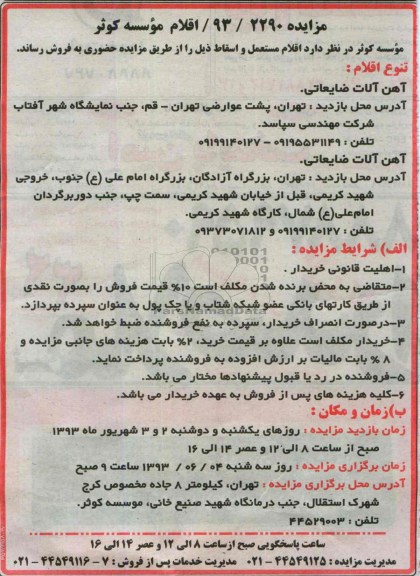 مزایده ۲۲۹۰ / ۹۳/ اقلام مؤسسه کوثر
مؤسسه کوثر در نظر دارد اقلام مستعمل و اسقاط ذیل را از طریق مزایده حضوری به فروش رساند.
تنوع اقلام :
آهن آلات ضایعاتی.
آدرس محل بازدید : تهران، پشت عوارضی تهران - قم، جنب نمایشگاه شهر آفتاب
شرکت مهندسی سپاسد.
تلفن : ۰۹۱۹۵۵۳۱۱۴۹ - ۰۹۱۹۹۱۴۰۱۲۷
آهن آلات ضایعاتی.
آدرس محل بازدید : تهران، بزرگراه آزادگان، بزرگراه امام علی (ع) جنوب، خروجی
شهید کریمی، قبل از خیابان شهید کریمی، سمت چپ، جنب دوربرگردان
امام‌علی(ع) شمال، کارگاه شهید کریمی.
تلفن : ۰۹۱۹۹۱۴۰۱۲۷ و ۰۹۳۷۳۰۷۱۸۱۲
الف) شرایط مزایده :
۱-اهلیت قانونی خریدار .
۲-متقاضی به محض برنده شدن مکلف است ۱۰% قیمت فروش را بصورت نقدی
از طریق کارتهای بانکی عضو شبکه شتاب و یا چک پول به عنوان سپرده بپردازد.
۳-درصورت انصراف خریدار، سپرده به نفع فروشنده ضبط خواهد شد.
۴-خریدار مکلف است علاوه بر قیمت خرید، ۲% بابت هزینه های جانبی مزایده و
۸ % بابت مالیات بر ارزش افزوده به فروشنده پرداخت نماید.
۵-فروشنده در رد یا قبول پیشنهادها مختار می باشد.
۶-کلیه هزینه های پس از فروش به عهده خریدار می باشد.
ب)زمان و مکان :
زمان بازدید مزایده : روزهای یکشنبه و دوشنبه ۲ و ۳ شهریور ماه ۱۳۹۳
صبح از ساعت ۸ الی ۱۲ و عصر ۱۴ الی ۱۶
زمان برگزاری مزایده : روز سه شنبه ۰۴ / ۰۶ / ۱۳۹۳ ساعت ۹ صبح
آدرس محل برگزاری مزایده : تهران، کیلومتر ۸ جاده مخصوص کرج
شهرک استقلال، جنب درمانگاه شهید صنیع خانی، موسسه کوثر.
تلفن : ۴۴۵۲۹۰۰۳
ساعت پاسخگویی صبح ازساعت ۸ الی ۱۲ و عصر ۱۴ الی ۱۶
مدیریت مزایده : ۴۴۵۴۹۱۲۵ - ۰۲۱ مدیریت خدمات پس از فروش : ۷ - ۴۴۵۴۹۱۱۶ - ۰۲۱